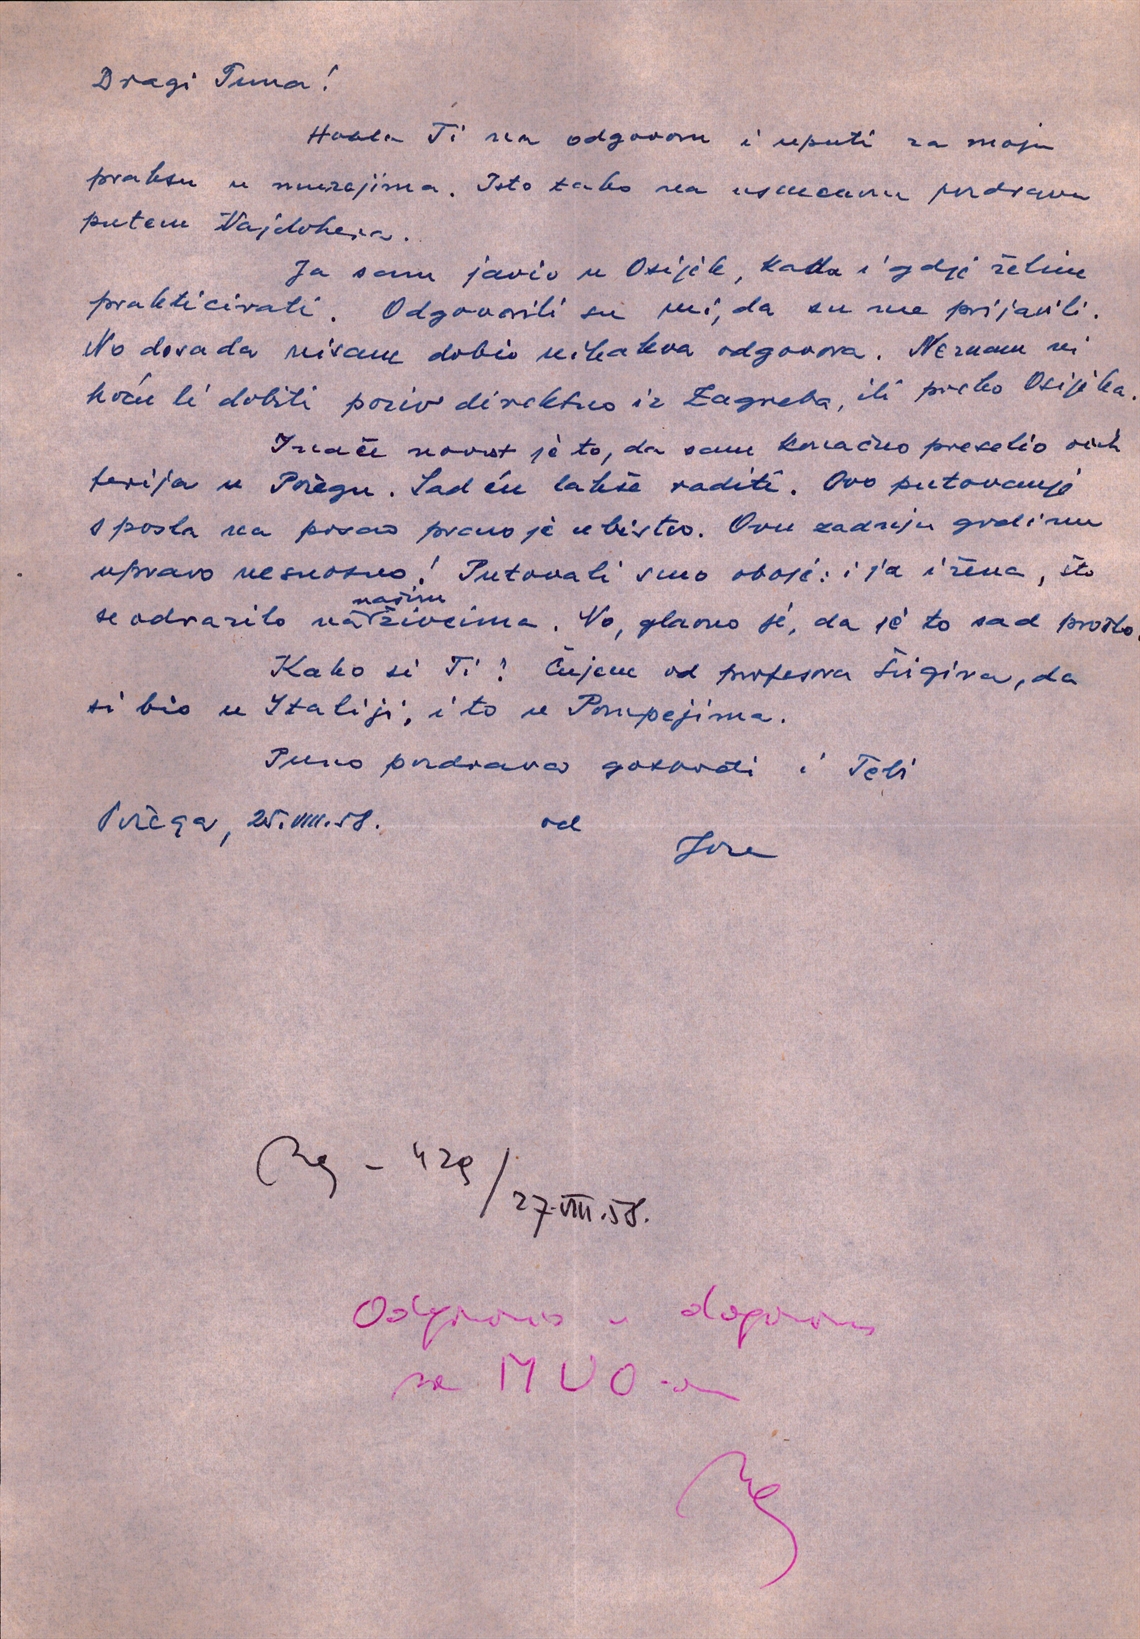 Dragi Tuna!
Hvala Ti na odgovoru i uputi za moju
praksu u muzejima. Isto tako na usmenom pozdravu
putem Vajdohera.
Ja sam javio u Osijek, kada i gdje želim
prakticirati. Odgovorili su mi, da su me prijavili.
No dosada nisam dobio nikakva odgovora. Neznam ni
hoću li dobiti poziv direktno iz Zagreba, ili preko Osijeka.
Inače novost je to, da sam konačno preselio
u Požegu. Sad ću lakše raditi. Ovo putovanje
s posla na posao pravo je ubistvo. Ovu zadnju godinu
upravo nesnosno! Putovali smo oboje: i ja i žena, što
se odrazilo na našim živcima. No, glavno je, da je to sad prošlo.
Kako si Ti? Čujem od profesora, da
si bio u Italiji, i to u Pompejima.
Puno pozdrava gospodi i Tebi
Požega, 25.VIII.58. od
Joza
- 429/27.VIII.58.
Odgovor u dogovoru
sa MUO-om